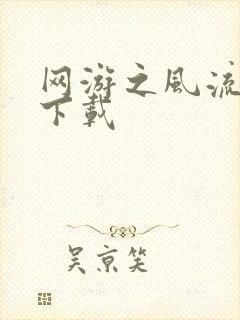 网游之风流
下载
吴京笑